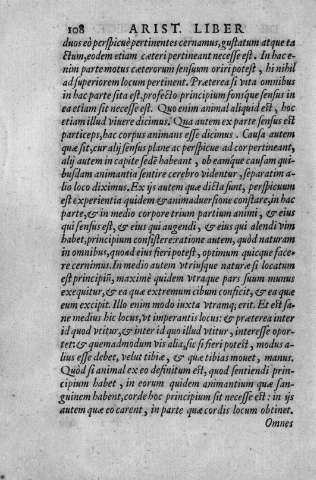 108 ARIST. LIBER
duos eò perspicuè pertinentes cernamus, gustatum atque ta
ctum, eodem etiam cæteri pertineant necesse est. In hac e-
nim parte motus cæterorum sensuum oriri potest, hi nihil
ad superiorem locum pertinent. Præterea si vita omnibus
in hac parte sita est, profectò principium fonsque sensus in
ea etiam sit necesse est. Quo enim animal aliquid est, hoc
etiam illud viuere dicimus. Qua autem ex parte sensus est
particeps, hac corpus animans esse dicimus. Causa autem
quæ sit, cur alij sensus plane ac perspicue ad cor pertineant,
alij autem in capite sedē habeant, ob eamque causam qui-
busdam animantia sentire cerebro videntur, separatim a-
lio loco diximus. Ex ijs autem quæ dicta sunt, perspicuum
est experientia quidem & animaduersione constare, in hac
parte, & in medio corpore trium partium animi, & eius
qui sensus est, & eius qui augendi, & eius qui alendi vim
habet, principium consistere: ratione autem, quòd naturam
in omnibus, quoad eius fieri potest, optimum quicque face-
re cernimus. In medio autem vtriusque naturæ si locatum
est principiū, maximè quidem vtraque pars suum munus
exequitur, & ea quæ extremum cibum conficit, & ea quæ
eum excipit. Illo enim modo iuxta vtramq; erit. Et est sa-
ne medius hic locus, vt imperantis locus: & præterea inter
id quod vtitur, & inter id quo illud vtitur, interesse opor-
tet: & quemadmodum vis alia, sic si fieri potest, modus a-
lius esse debet, velut tibiæ, & quæ tibias mouet, manus.
Quòd si animal ex eo definitum est, quod sentiendi prin-
cipium habet, in eorum quidem animantium quæ san-
guinem habent, corde hoc principium sit necesse est: in ijs
autem quæ eo carent, in parte quæ cordis locum obtinet.
Omnes